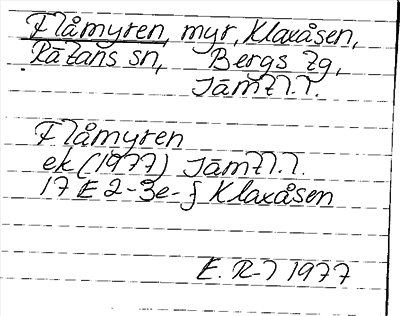 Flåmyren, myr, Klaxåsen,
Rätans sn, Bergs tg,
Jämtl.l.
Flåmyren
ek (1977) Jämtl.l.
17 E 2-3e-f Klaxåsen
E. R-7 1977